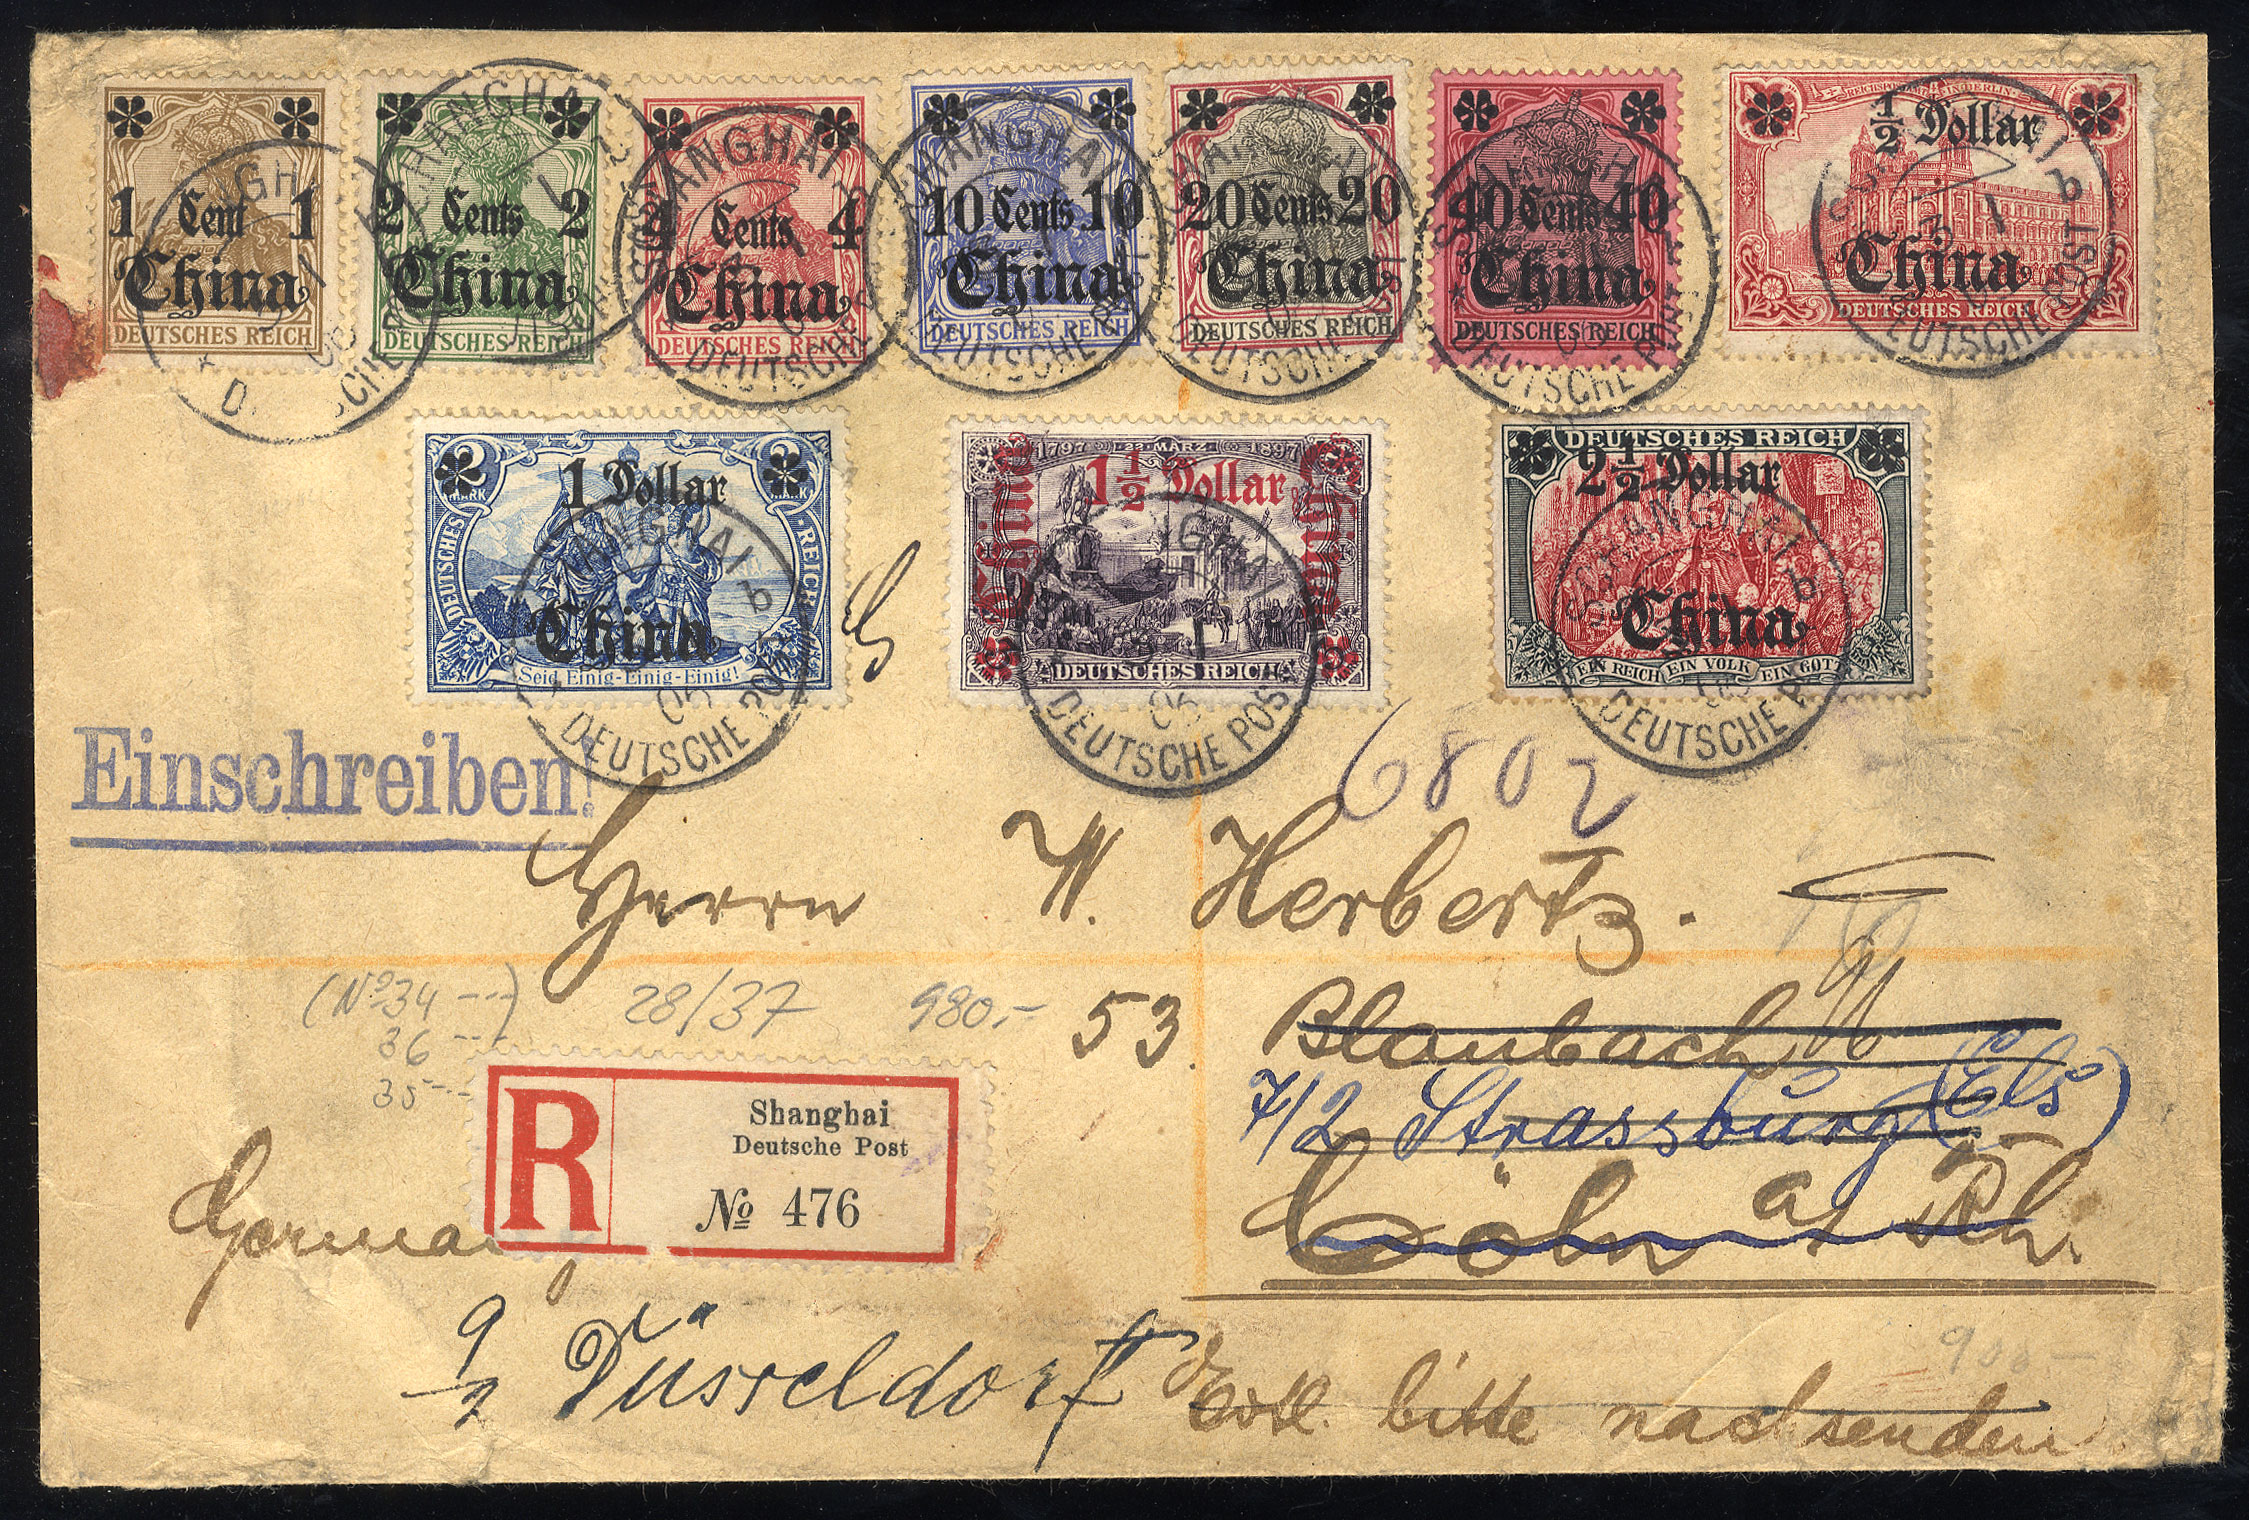 1 Cent 1
China
DEUTSCHES REICH
2 Cents 2
China
DEUTSCHES REICH
4 Cents 4
China
DEUTSCHES REICH
10 Cents 10
China
DEUTSCHES REICH
20 Cents 20
China
DEUTSCHES REICH
40 Cents 40
China
DEUTSCHES REICH
½ Dollar
China
DEUTSCHES REICH
SHANGHAI
DEUTSCHE POST
b
2 2
MARK MARK
1 Dollar
DEUTSCHES REICH
China
Seid Einig-Einig-Einig!
SHANGHAI
b
06
DEUTSCHE POST
1797 22 MÄRZ 1897
1½ Dollar
China China
DEUTSCHES REICH
06
DEUTSCHE POST
DEUTSCHES REICH
2½ Dollar
China
EIN REICH EIN VOLK EIN GOTT
SHANGHAI
b
DEUTSCHE
6802
Einschreiben!
Herrn W. Herbertz.
(No 34 --)
36 --
35 --
28/37 980.-
53. Blaubach
7/2 Strassburg (Els)
Cöln a/Rh.
R
Shanghai
Deutsche Post
No 476
Germany
9/2 Düsseldorf
900 -
Evtl. bitte nachsenden